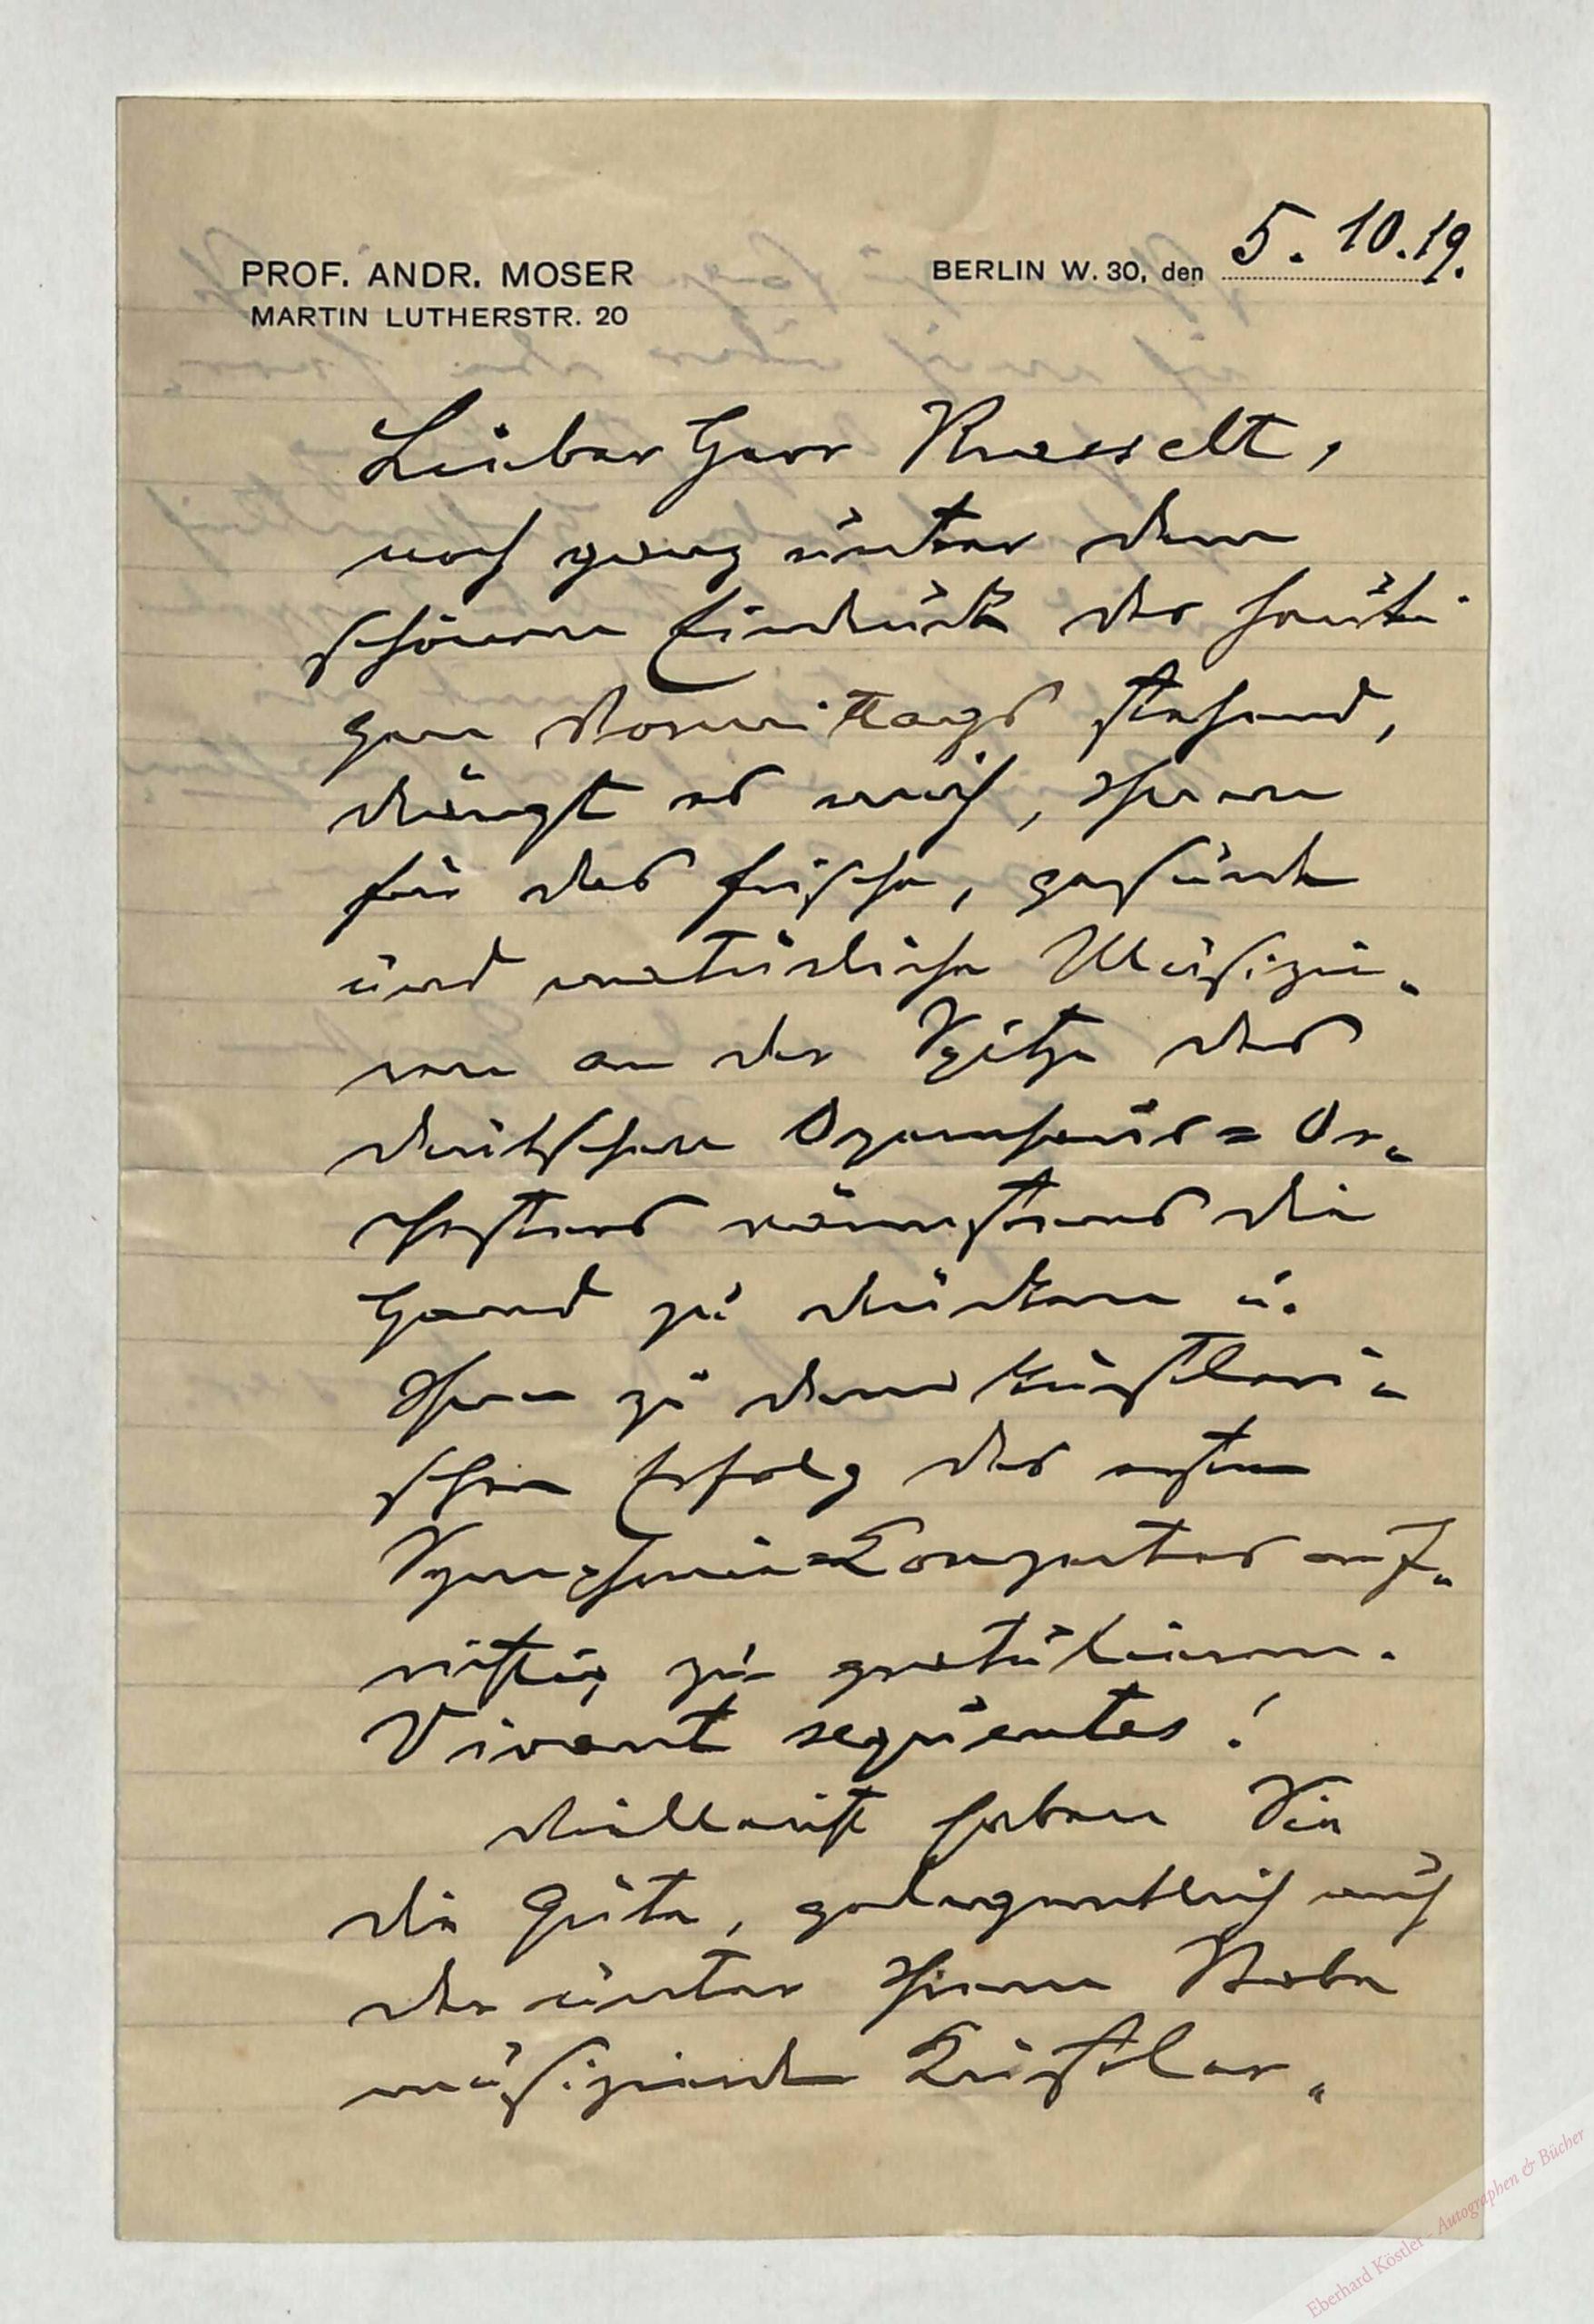 PROF. ANDR. MOSER
MARTIN LUTHERSTR. 20
BERLIN W. 30, den 5. 10. 19.
Lieber Herr Krasselt,
noch ganz unter dem
schönen Eindruck des heuti-
gen Vormittags stehend,
drängt es mich, Ihnen
für das frische, gesunde
und natürliche Musizie-
ren an der Spitze des
deutschen Opernhaus=Or-
chesters wärmstens die
Hand zu drücken u.
Ihnen zu dem künstleri-
schen Erfolg des ersten
Symphonie=Conzertes auf-
richtig zu gratulieren.
Vivant sequentes!
Vielleicht haben Sie
die Güte, gelegentlich auch
der unter Ihrem Stabe
musizierenden Künstler-
Eberhard Köstler – Autographen & Bücher